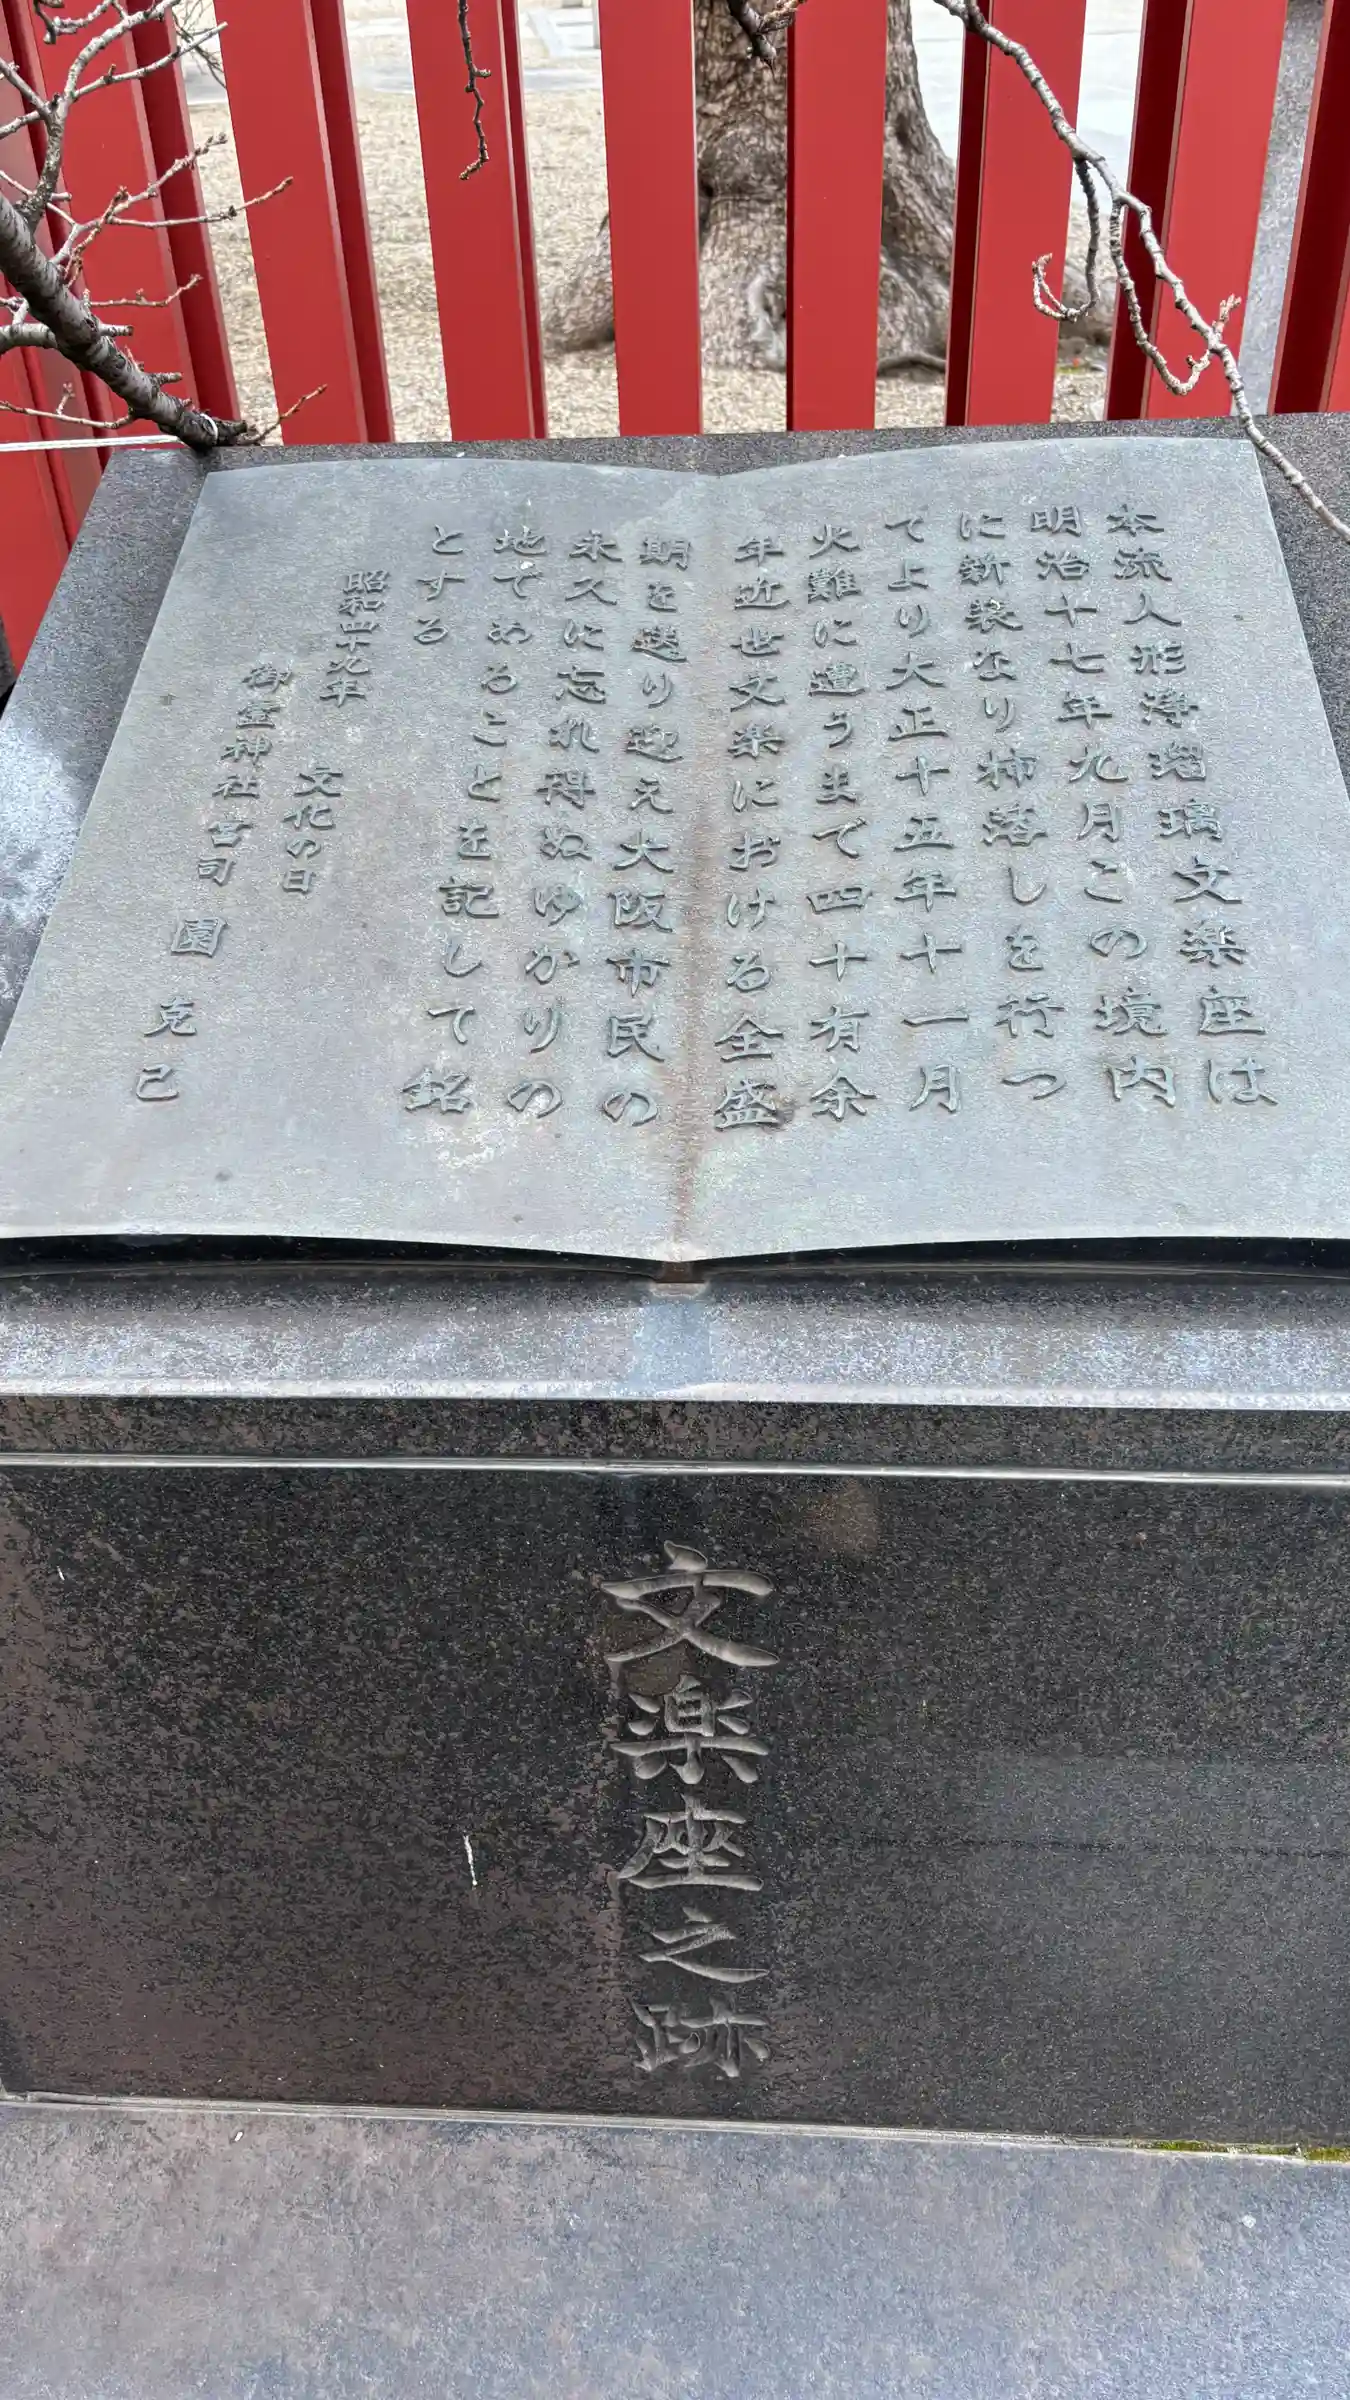 本流人形浄瑠璃文楽座は
明治十七年九月この境内
に新装なり柿落しを行つ
てより大正十五年十一月
火難に遭うまで四十有余
年近世文楽における全盛
期を送り迎え大阪市民の
永久に忘れ得ぬゆかりの
地であることを記して銘
とする
昭和四十九年 文化の日
御霊神社宮司 園克己
文楽座之跡